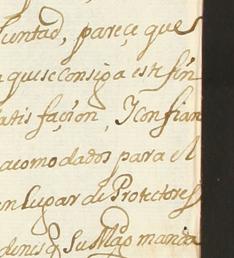 luntad, pareçe que
quese consiga este fin
satisfaçion, Y confian
acomodados para el
en Lugar de Protectores
denes q Su Magd manda